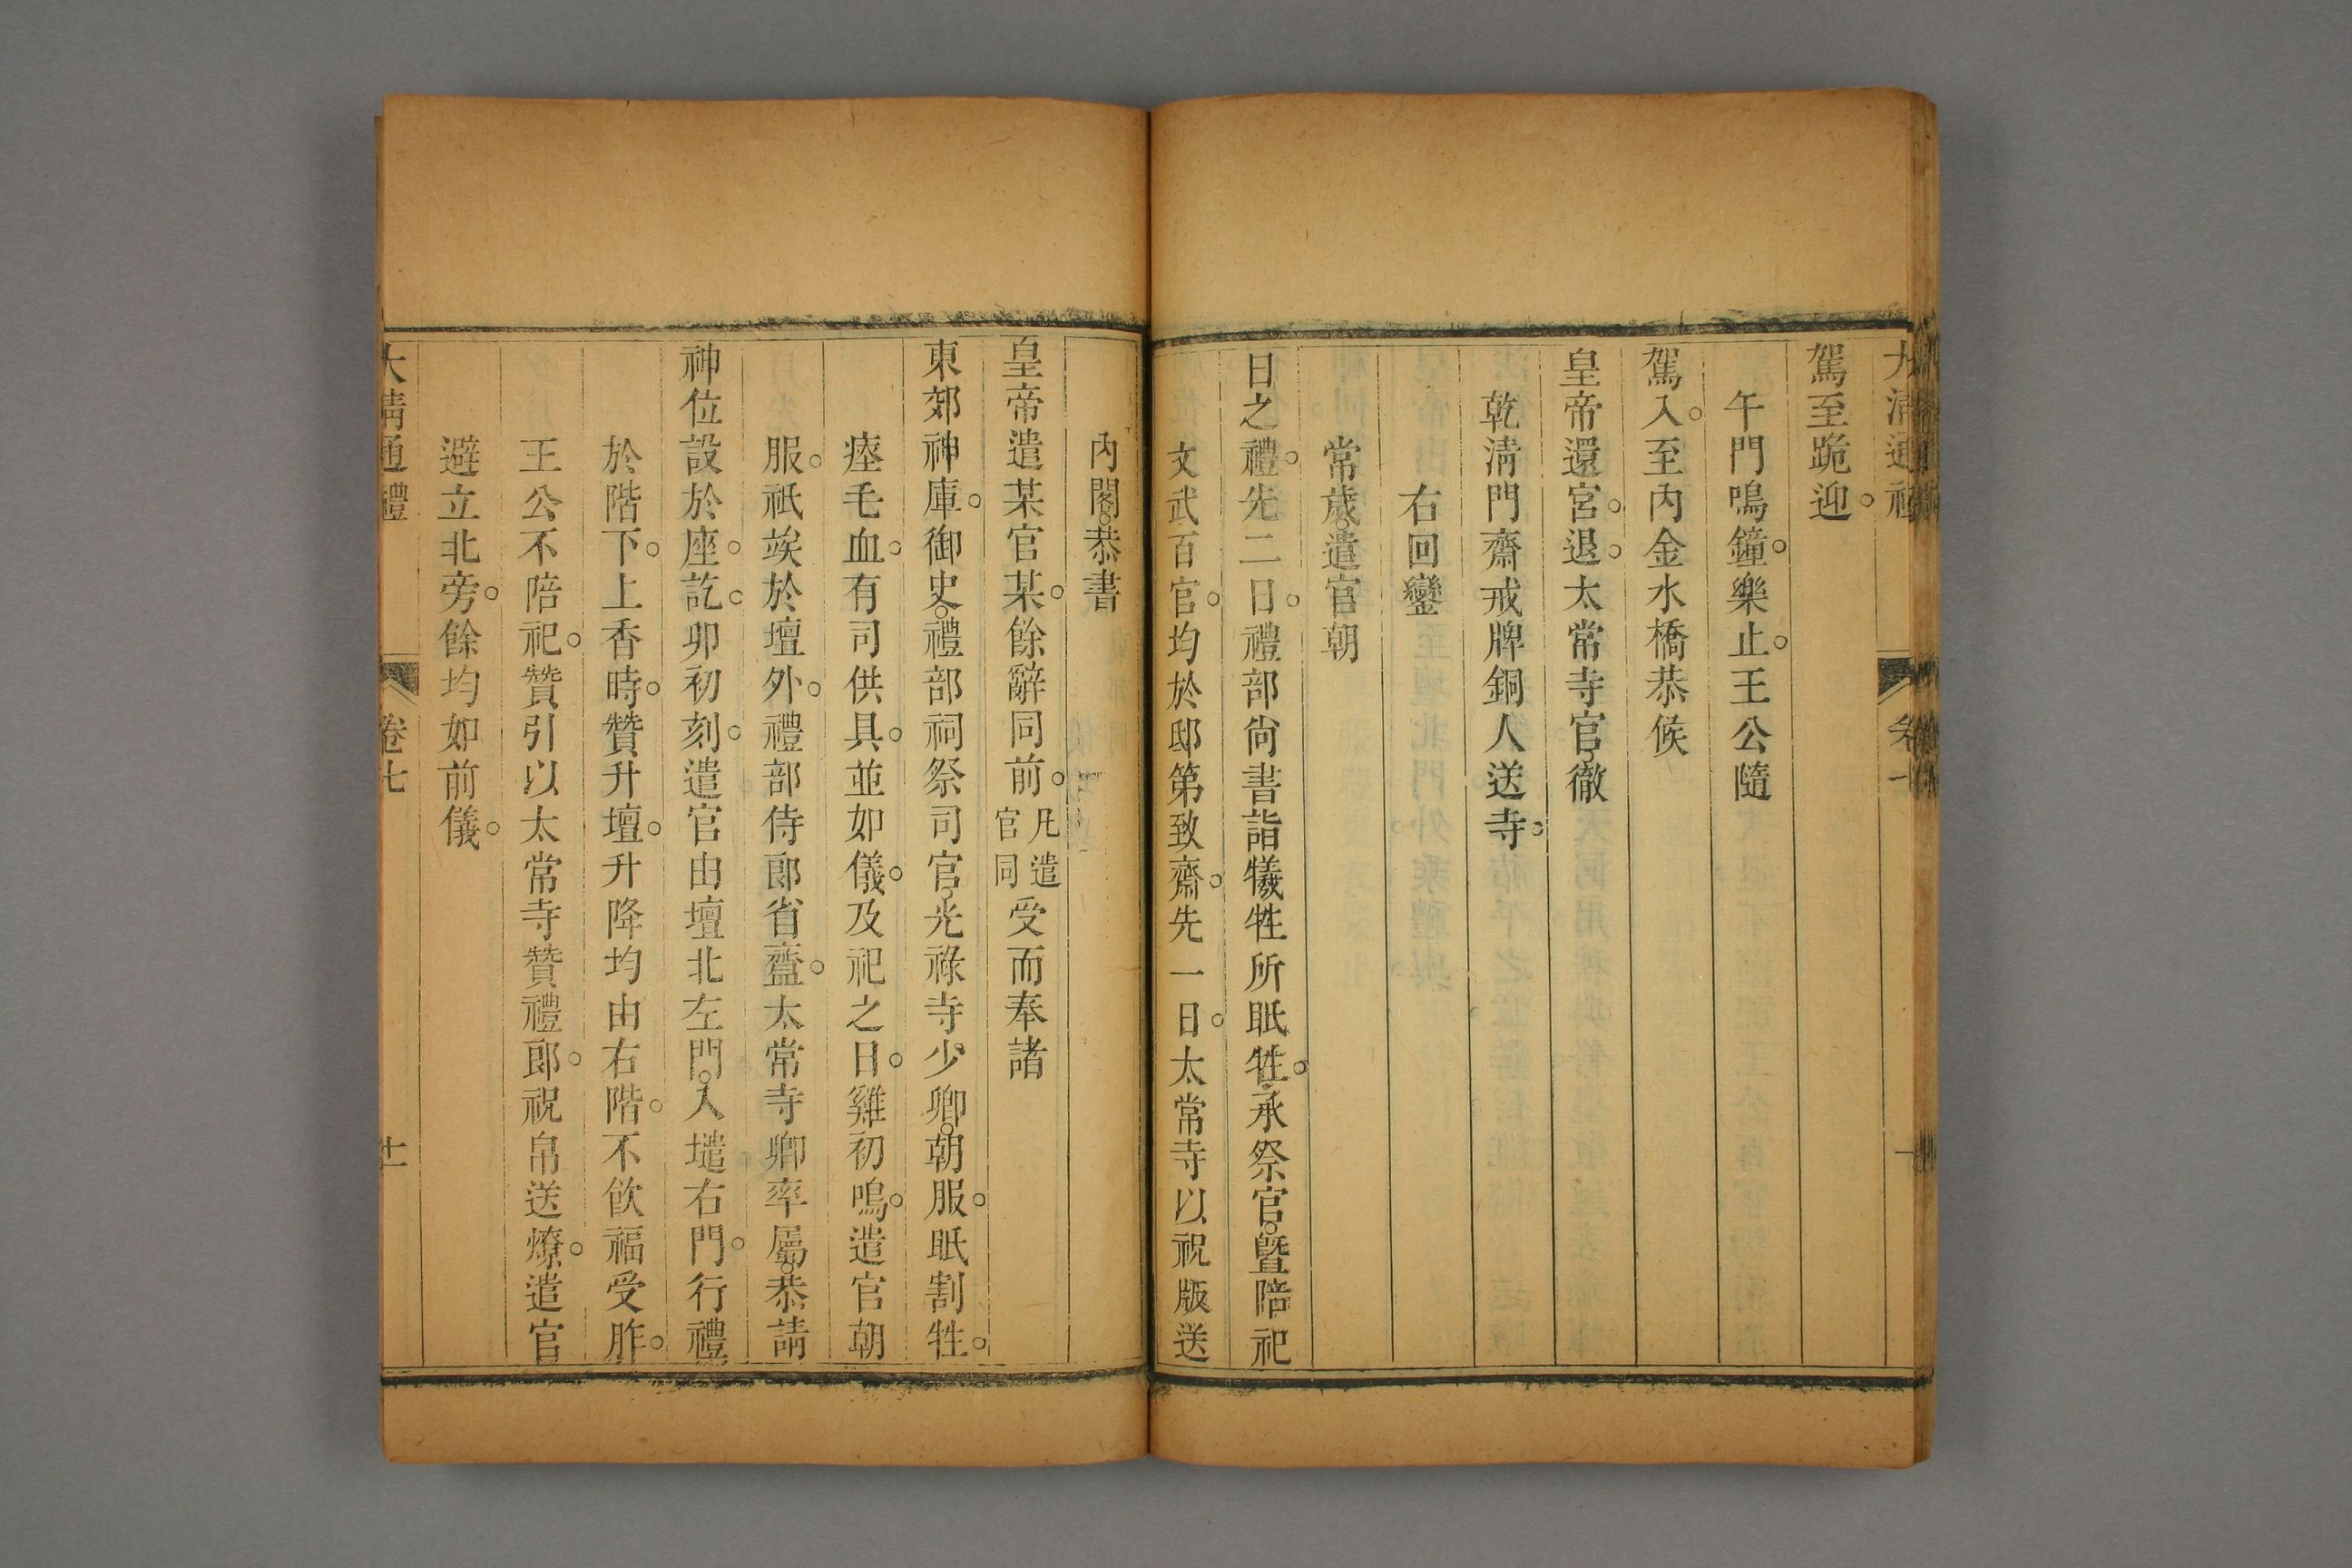 駕至跪迎。
午門鳴鐘。樂止。王公隨
駕入。至內金水橋恭候
皇帝還宮。退。太常寺官。徹
乾清門齋戒牌銅人送寺。
右回鑾
常歲。遣官朝
日之禮。先二日。禮部尙書詣犧牲所眡牲。承祭官。曁陪祀
文武百官。均於邸第致齋。先一日。太常寺以祝版送
內閣。恭書
皇帝遣某官某。餘辭同前。凡遣官同受而奉諸
東郊神庫。御史。禮部祠祭司官。光祿寺少卿。朝服。眡割牲。
瘞毛血。有司供具。並如儀。及祀之日。雞初鳴。遣官朝
服。祇竢於壇外。禮部侍郞省齍。太常寺卿率屬。恭請
神位設於座。訖。卯初刻。遣官由壇北左門。入壝右門。行禮
於階下。上香時。贊升壇。升降均由右階。不飮福受胙。
王公不陪祀。贊引以太常寺贊禮郞。祝帛送燎。遣官
避立北旁。餘均如前儀。
大清通禮 卷七 十一